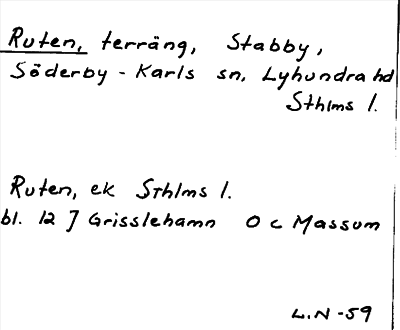 Ruten, terräng, Stabby,
Söderby - Karls sn, Lyhundra hd
Sthlms l.
Ruten, ek Sthlms l.
bl. 12 J Grisslehamn O c Massum
L.N -59